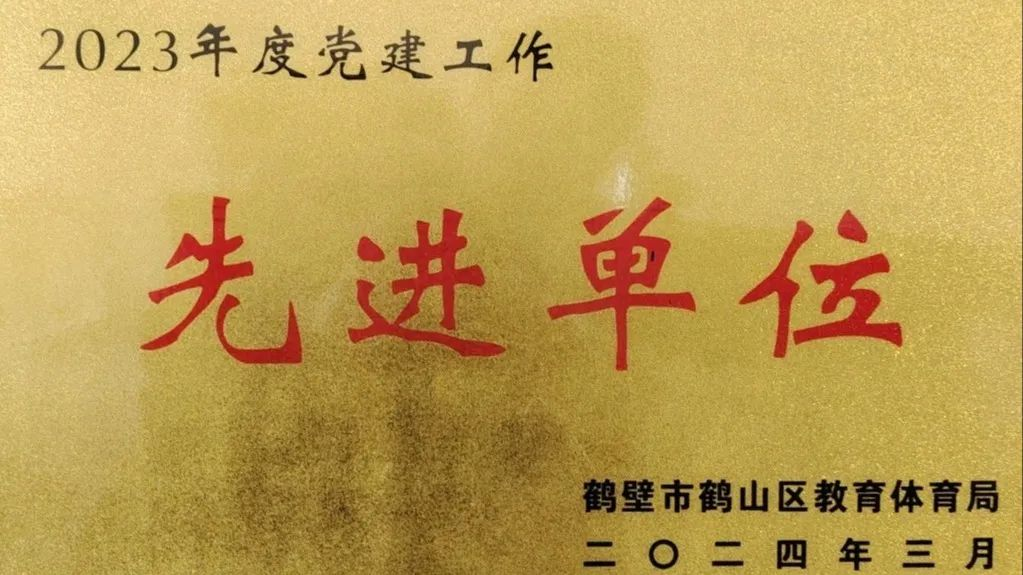 2023年度党建工作
先进单位
鹤壁市鹤山区教育体育局
二〇二四年三月